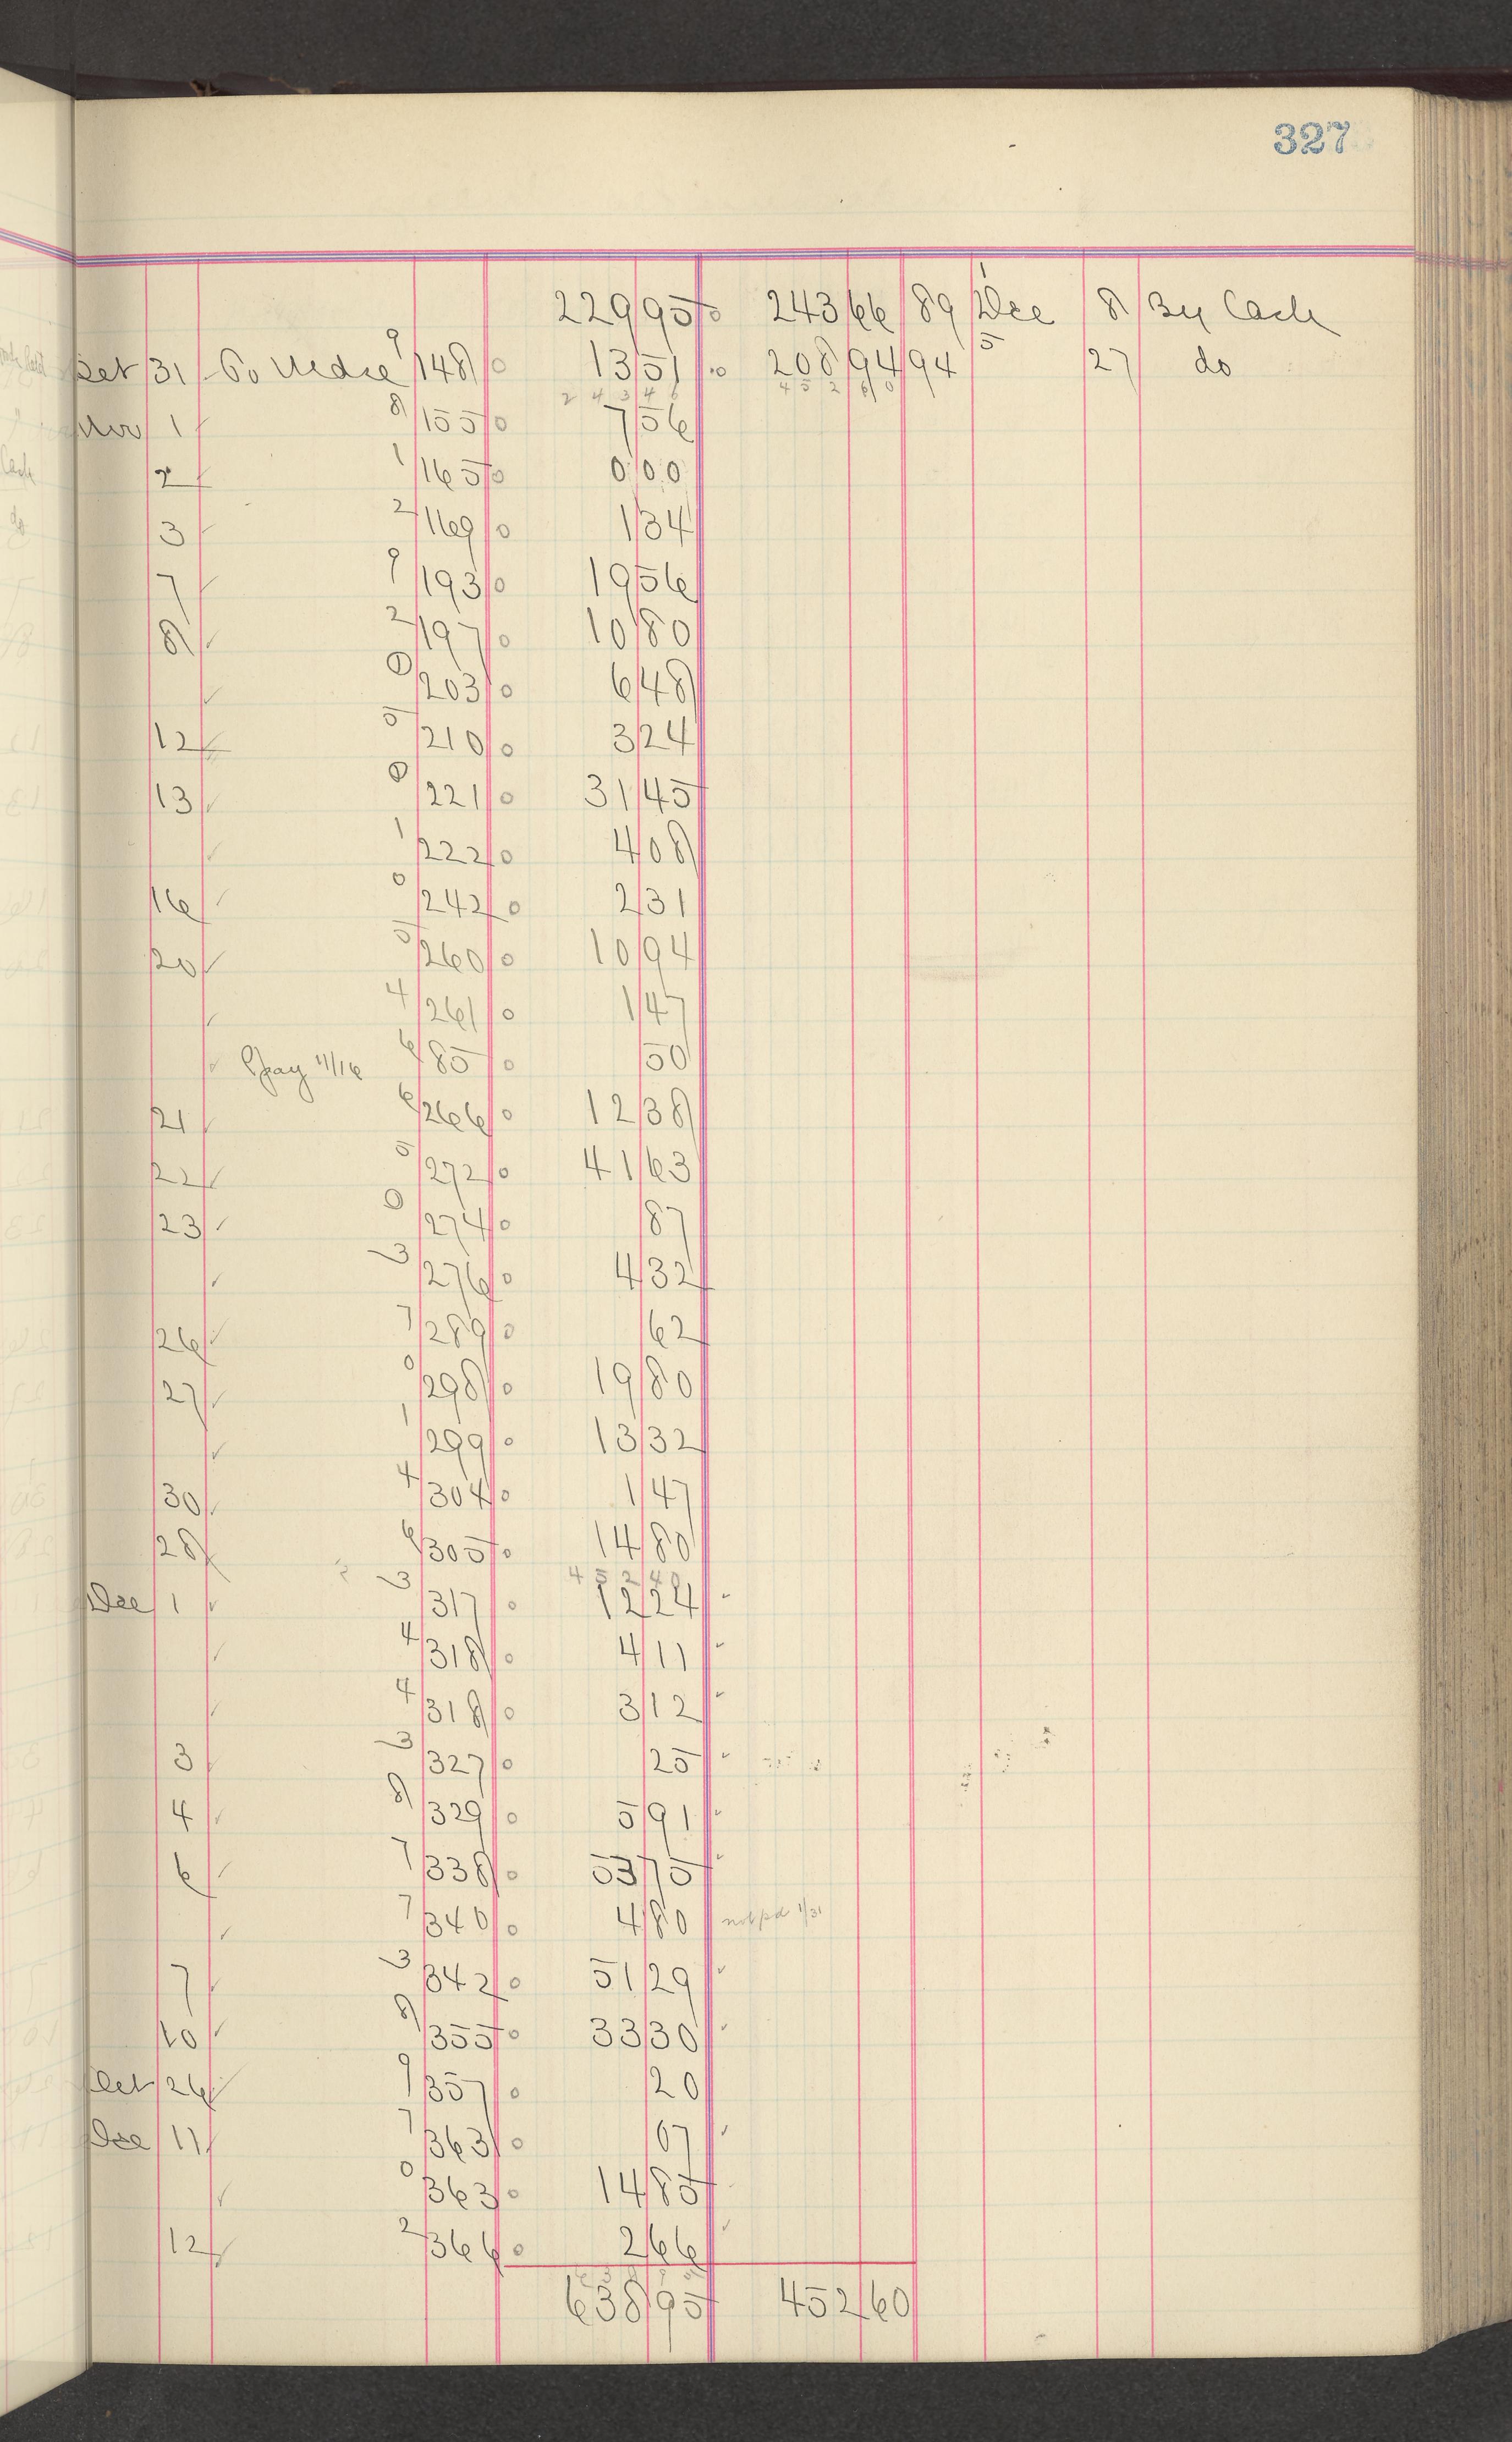 327
229 95 243 66 89 Dec 8 By Cash
Oct 31 To Mdse 9 148 13 51 208 94 94 5 27 do
2 4 3 4 6 4 5 2 6 0
Nov 1 8 155 7 56
2 1 165 0 00
3 2 169 1 34
7 9 193 19 56
8 2 197 10 80
0 203 6 48
12 5 210 3 24
13 0 221 31 45
1 222 4 08
16 0 242 2 31
20 5 260 10 94
4 261 1 47
11/16 6 85 50
21 6 266 12 38
22 5 272 41 63
23 0 274 87
3 276 4 32
26 7 289 62
27 0 298 19 80
1 299 13 32
30 4 304 1 47
28 6 305 14 80
4 5 2 4 0
Dec 1 3 317 12 24
4 318 4 11
4 318 3 12
3 3 327 25
4 8 329 5 91
6 7 338 53 75
7 340 4 80 not pd 1/31
7 3 342 51 29
10 8 355 33 30
Oct 26 9 357 20
Dec 11 7 363 07
0 363 14 85
12 2 366 2 66
638 95 452 60